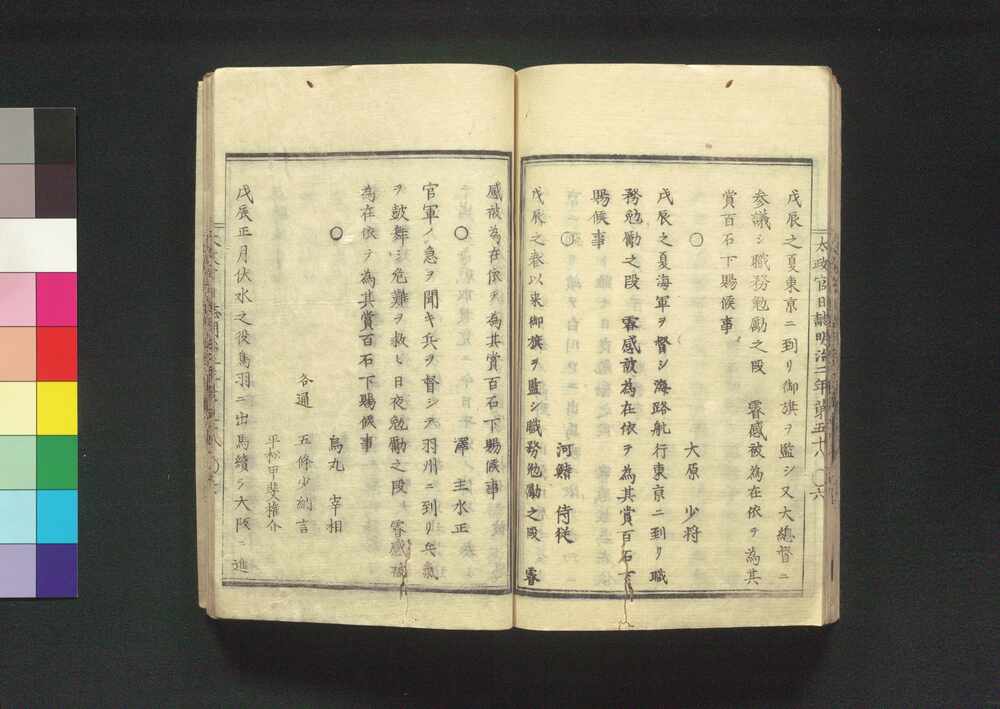 太政官日誌明治二年第五十八 ○六
戊辰之夏東京ニ到リ御旗ヲ監シ又大總督ニ
参議シ職務勉勵之段 睿感被為在依テ為其
賞百石下賜候事
○ 大原 少将
戊辰之夏海軍ヲ督シ海路航行東京ニ到リ職
務勉勵之段 睿感被為在依テ為其賞百石下
賜候事
○ 河鰭 侍従
戊辰之春以来御旗ヲ監シ職務勉勵之段 睿
感被為在依テ為其賞百石下賜候事
○ 澤 主水正
官軍ノ急ヲ聞キ兵ヲ督シテ羽州ニ到リ兵氣
ヲ鼓舞シ危難ヲ救ヒ日夜勉勵之段 睿感被
為在依テ為其賞百石下賜候事
○ 烏丸 宰相
各通 五條少納言
平松甲斐権介
戊辰正月伏水之役鳥羽ニ出馬續テ大阪ニ進